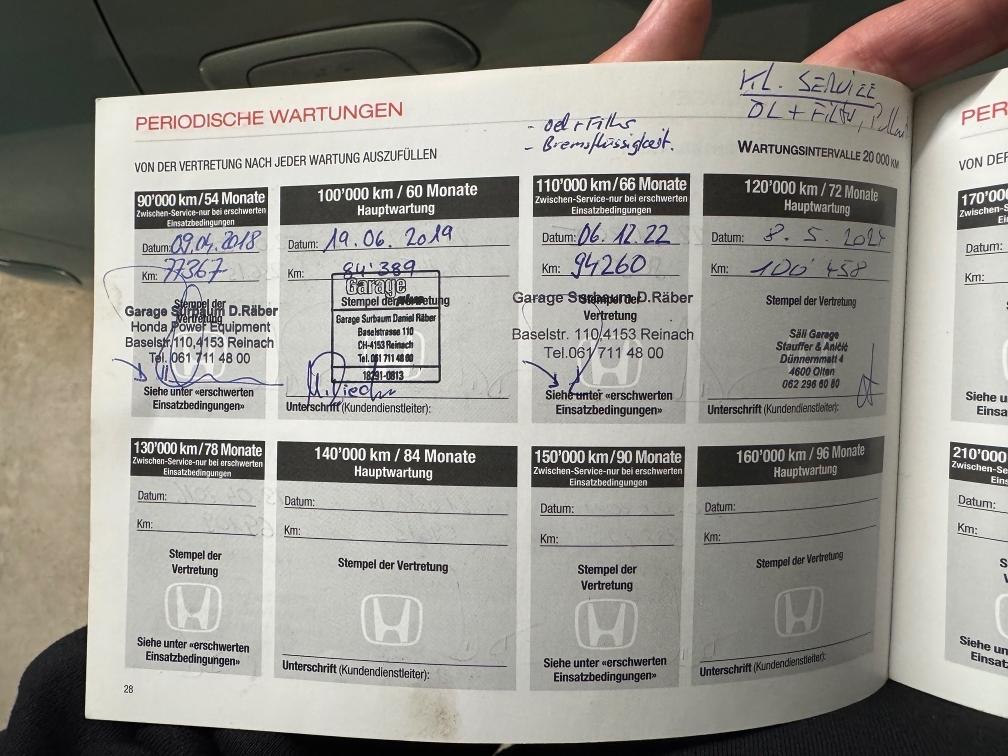 KL. SERVICE
PERIODISCHE WARTUNGEN
- Oel + Filter
ÖL + Filter,
- Bremsflüssigkeit.
VON DER VERTRETUNG NACH JEDER WARTUNG AUSZUFÜLLEN
WARTUNGSINTERVALLE 20 000 KM
90'000 km/54 Monate
Zwischen-Service-nur bei erschwerten
Einsatzbedingungen
Datum: 09.04.2018
Km: 77367
Stempel der
Vertretung
Garage Surbaum D.Räber
Honda Power Equipment
Baselstr.110,4153 Reinach
Tel. 061 711 48 00
Siehe unter «erschwerten
Einsatzbedingungen»
100'000 km / 60 Monate
Hauptwartung
Datum: 19.06.2019
Km: 84'389
Stempel der Vertretung
Garage
Garage Surbaum Daniel Räber
Baselstrasse 110
CH-4153 Reinach
Tel. 061 711 48 00
18291-0813
Unterschrift (Kundendienstleiter):
110'000 km/66 Monate
Zwischen-Service-nur bei erschwerten
Einsatzbedingungen
Datum: 06.12.22
Km: 94260
Stempel der
Vertretung
Garage Surbaum D.Räber
Baselstr. 110,4153 Reinach
Tel.061 711 48 00
Siehe unter «erschwerten
Einsatzbedingungen»
120'000 km / 72 Monate
Hauptwartung
Datum: 8. 5. 2024
Km: 100'458
Stempel der Vertretung
Säli Garage
Stauffer & Aničić
Dünnernmatt 4
4600 Olten
062 296 60 80
Unterschrift (Kundendienstleiter):
130'000 km/78 Monate
Zwischen-Service-nur bei erschwerten
Einsatzbedingungen
Datum:
Km:
Stempel der
Vertretung
Siehe unter «erschwerten
Einsatzbedingungen»
140'000 km / 84 Monate
Hauptwartung
Datum:
Km:
Stempel der Vertretung
Unterschrift (Kundendienstleiter):
150'000 km/90 Monate
Zwischen-Service-nur bei erschwerten
Einsatzbedingungen
Datum:
Km:
Stempel der
Vertretung
Siehe unter «erschwerten
Einsatzbedingungen»
160'000 km / 96 Monate
Hauptwartung
Datum:
Km:
Stempel der Vertretung
Unterschrift (Kundendienstleiter):
28
PER
VON DER
170'000
Zwischen-S
Datum:
Km:
Siehe un
Einsa
210'000
Zwischen-Se
Datum:
Km:
Siehe un
Einsa